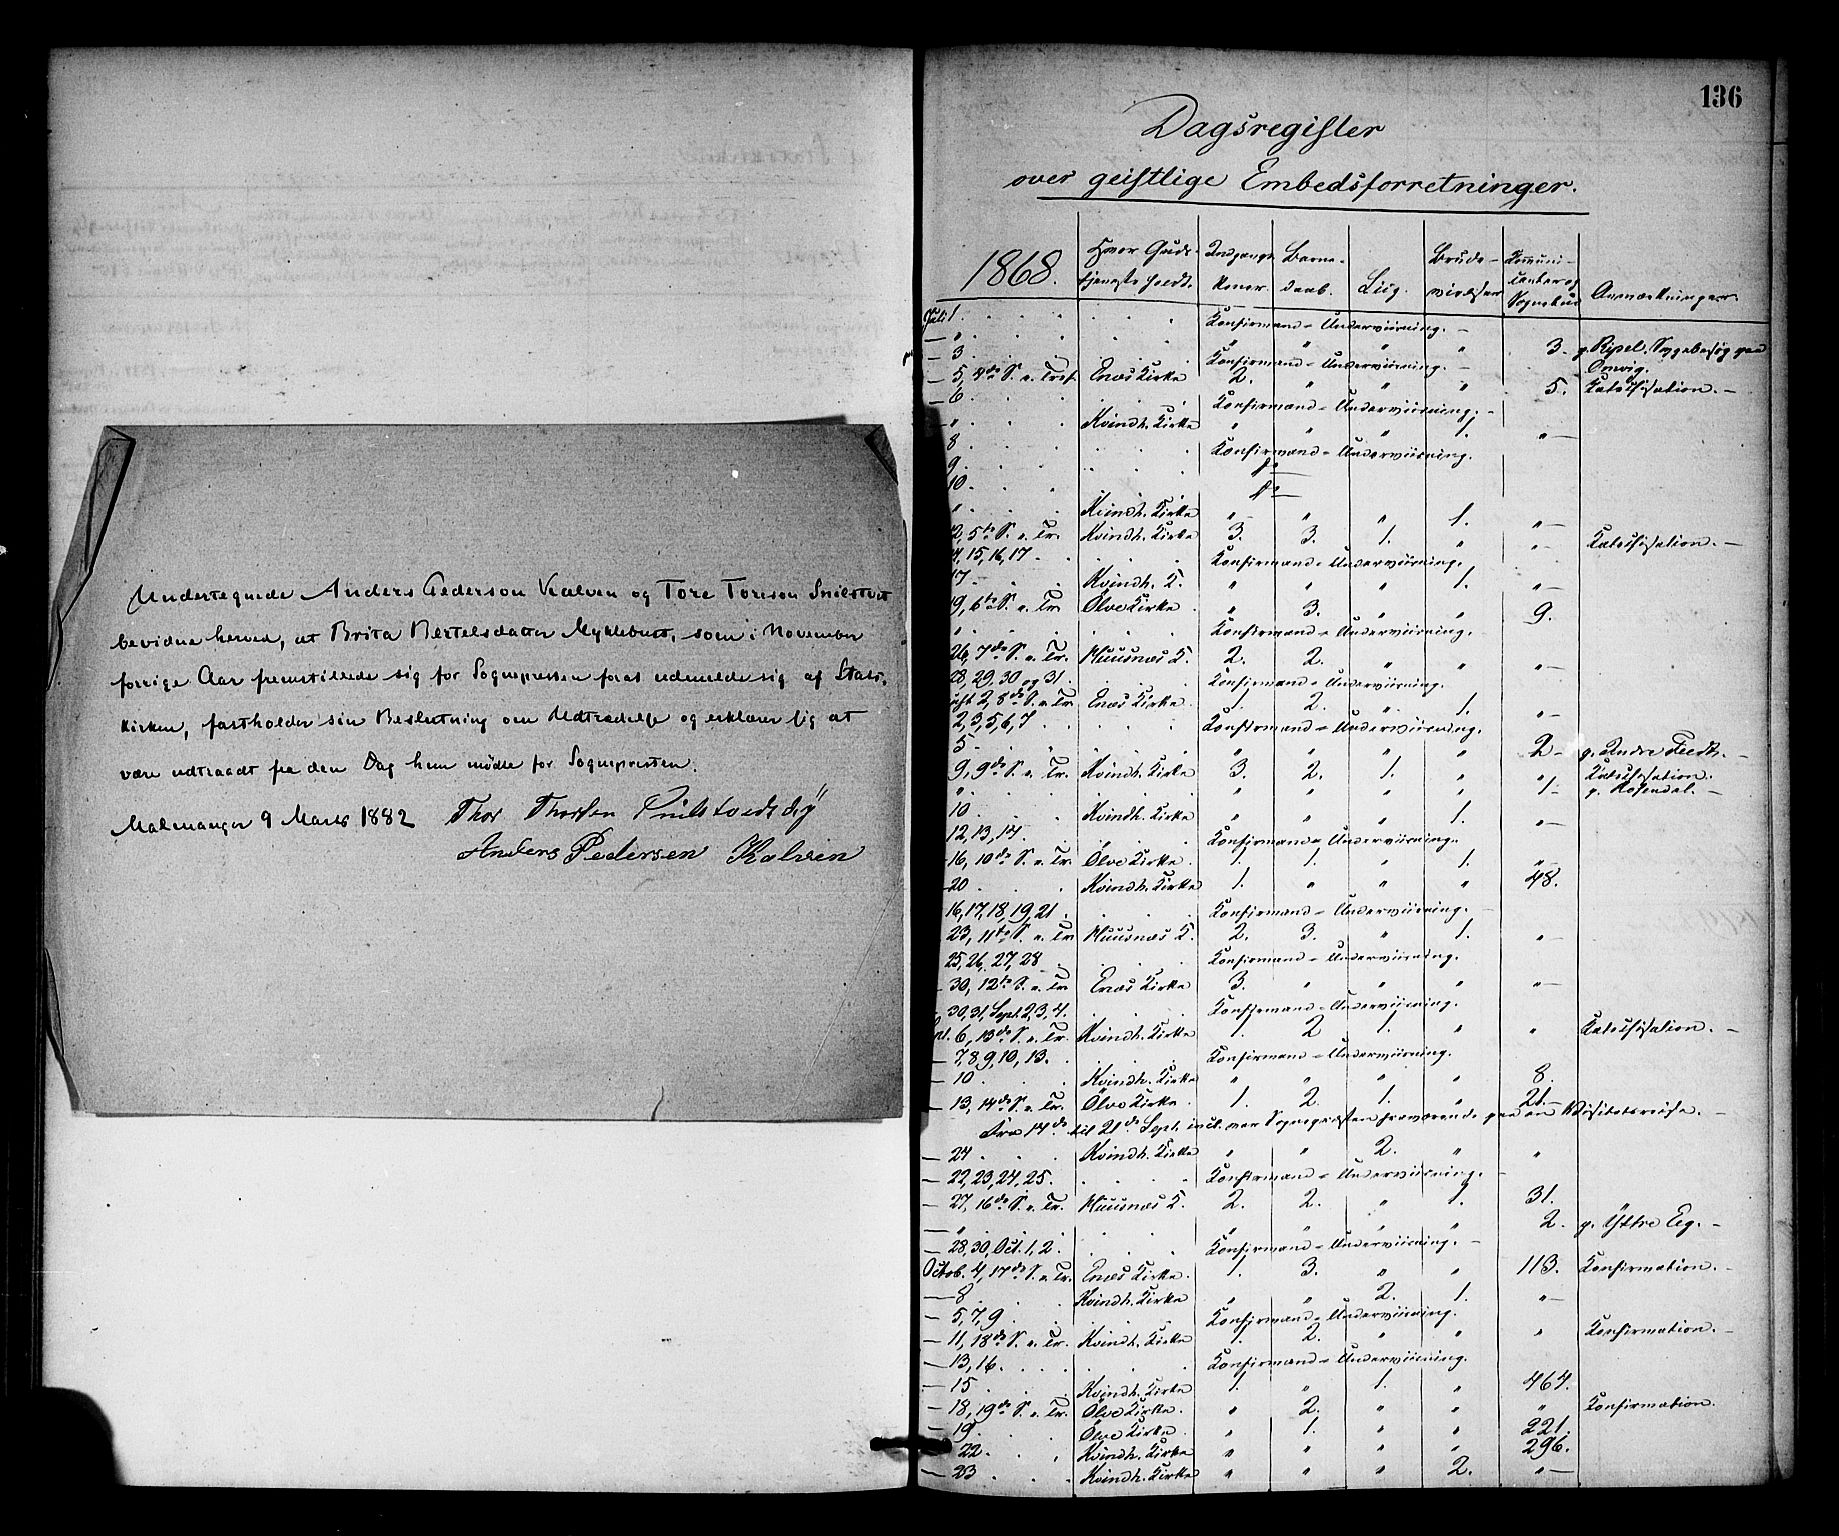 Undertegnede Anders Pederson Kalven og Tore Toreson Snilstvet
bevidne herved, at Brita Bertelsdatter Myklebust, som i November
forrige Aar fremstillede sig for Sognepresten forat udmelde sig af Stats-
kirken, fastholder sin Beslutning om Udtrædelse og erklærer sig at
være udtraadt fra den Dag hun mødte for Sognepresten.
Malmanger 9 Marts 1882 Thor Thorsen
Anders Pedersen Kalven
136
Dagsregister
over geistlige Embedsforretninger.
1868. Hvor Guds- Indgangs Barne- Brude- Communi-
tjeneste holdt. Koner. daab. Liig. vielser canter og Sognebud Anmærkninger.
Juli 1. Konfirmand-Underviisning.
— " " " " 3. p. Ripel. Sygebesøg paa Omvig.
— 3. Konfirmand-Underviisning.
— 5, 4de S. e. Tref. Enæs Kirke 2. " " " 5. Katechisation.
— 6. Konfirmand-Underviisning.
— " Kvindh. Kirke " " " 1. "
8. Konfirmand-Underviisning.
9. do
10. do
" Kvindh. Kirke " " " 1. "
12, 5te S. e. Tr. Kvindh. Kirke 3. 3. 1. " " Katechisation.
14, 15, 16, 17 Konfirmand-Underviisning.
17. Kvindh. K. " " " 1. "
19, 6te S. e. Tr. Ølve Kirke " 3. " " 9.
" Konfirmand-Underviisning.
26, 7de S. e. Tr. Huusnæs K. 2. 2. " " "
28, 29, 30 og 31 Konfirmand-Underviisning.
2, 8de S. e. Tr. Enæs Kirke 1. 2. " 1. "
2, 3, 5, 6, 7 Konfirmand-Underviisning.
5. " " " " 2 p. Indre
9, 9de S. e. Tr. Kvindh. Kirke 3. 2. 1. " " Katechisation.
" " " " " 1 p. Rosendal.
10. Kvindh. Kirke " " " 1. "
12, 13, 14. Konfirmand-Underviisning.
16, 10de S. e. Tr. Ølve Kirke 1. 1. " 1. "
20 Kvindh. Kirke 1. " " " 48.
16, 17, 18, 19, 21. Konfirmand-Underviisning.
23, 11te S. e. Tr. Huusnæs K. 2. 3. " 1. "
25, 26, 27, 28 Konfirmand-Underviisning.
30, 12te S. e. Tr. Enæs Kirke 3. " " " "
30, 31, Sept. 2, 3, 4. Konfirmand-Underviisning.
Spt. 6, 13de S. e. Tr. Kvindh. Kirke 1. 2 1. " " Katechisation.
— 7, 8, 9, 10, 13. Konfirmand-Underviisning.
— 10 Kvindh. Kirke " " " " 8.
— 13, 14de S. e. Tr. Ølve Kirke 1. 2. 1. " 21.
Fra 14de til 21de Sept. incl. var Sognepresten fraværende paa en Visitatsreise.
— 24 Kvindh. Kirke " " 2. " "
— 22, 23, 24, 25. Konfirmand-Underviisning.
— 27, 16de S. e. Tr. Huusnæs K. 2. 2. " 1. 31.
— " " " " " 2. p. Yttre Eeg.
— 28, 30, Oct. 1, 2. Konfirmand-Underviisning.
Octob. 4, 17de S. e. Tr. Enæs Kirke. 1. 3. " " 113. Konfirmation.
— 8 Kvindh. Kirke " " 2. 1. "
— 5, 7, 9 Konfirmand-Underviisning.
— 11, 18de S. e. Tr. Kvindh. Kirke 1. 2. " " " Konfirmation.
— 13, 16. Konfirmand-Underviisning.
— 15 Kvindh. Kirke 1. " 1. " 464.
— 18, 19de S. e. Tr. Ølve Kirke. " 2. " " " Konfirmation.
— 19. Ølve Kirke " 1. " " 221.
— 22. Kvindh. Kirke " " " " 296.
— 23 Kvindh. Kirke " " " 2. "